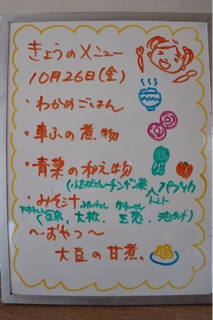 きょうのメニュー
10月26日(金)
・わかめごはん
・車ふの煮物
・青菜の和え物
(ほうれんそう、チンゲン菜、パプリカ
・みそ汁
(豆腐、大根、玉葱、油あげ)
～おやつ～
大豆の甘煮